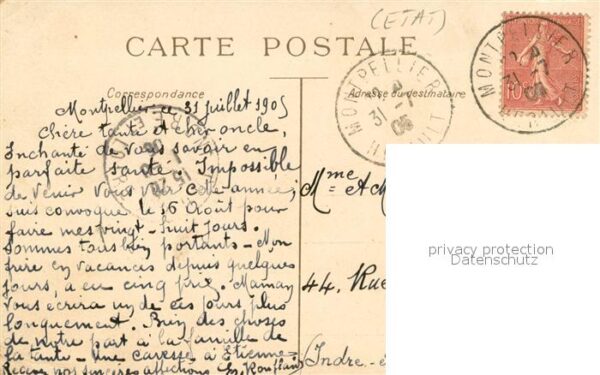 (ETAT)
CARTE POSTALE
Correspondance
Adresse du destinataire
MONTPELLIER
MONTPELLIER
10
Montpellier le 31 juillet 1905
Chère tante et cher oncle,
Enchanté de vous savoir en
parfaite santé. Impossible
de venir vous voir cette année;
suis convoqué le 16 Août pour
faire mes vingt-huit jours.
Sommes tous bien portants - Mon
frère en vacances depuis quelques
jours, a eu cinq prix. Maman
vous écrira un de ces jours plus
longuement. Bien des choses
de notre part à la famille de
la tante - Une caresse à Etienne -
Recevez nos sincères affections
Mme A M
44. Rue
Indre-
privacy protection
Datenschutz